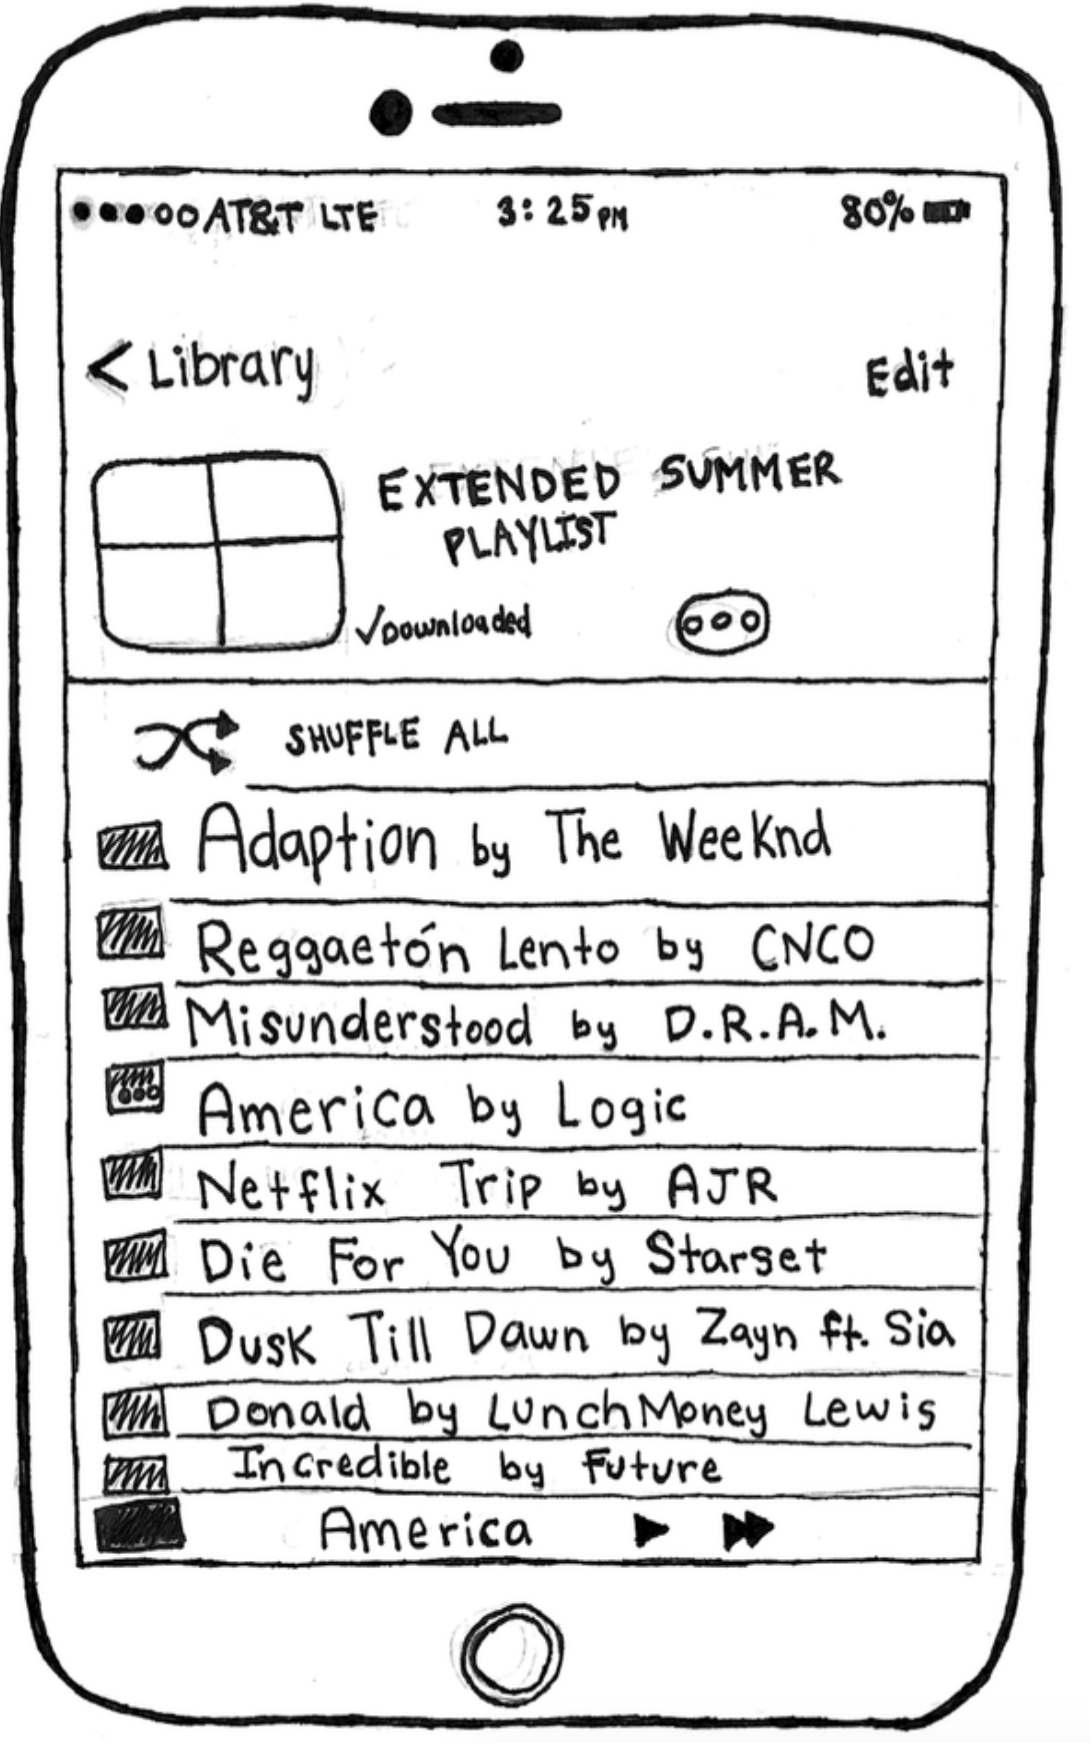 AT&T LTE 3:25 PM 80%
< Library Edit
EXTENDED SUMMER
PLAYLIST
✓Downloaded
SHUFFLE ALL
Adaption by The Weeknd
Reggaetón Lento by CNCO
Misunderstood by D.R.A.M.
America by Logic
Netflix Trip by AJR
Die For You by Starset
Dusk Till Dawn by Zayn ft. Sia
Donald by LunchMoney Lewis
Incredible by Future
America